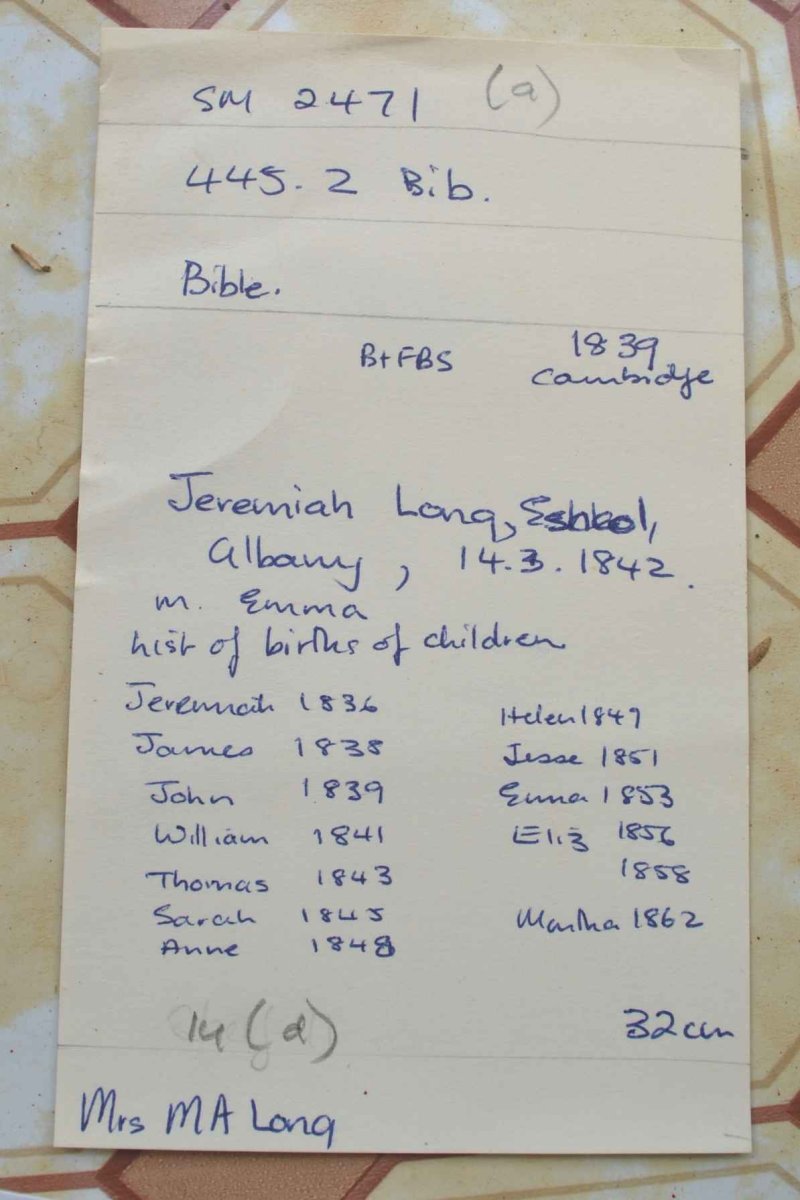 SM 2471 (a)
445.2 Bib.
Bible.
B+FBS 1839
Cambridge
Jeremiah Long, Eshkol,
Albany, 14.3.1842.
m. Emma
List of births of children
Jeremiah 1836
James 1838
John 1839
William 1841
Thomas 1843
Sarah 1845
Anne 1848
Helen 1849
Jesse 1851
Emma 1853
Eliz 1856
1858
Martha 1862
14 (d)
32cm
Mrs MA Long